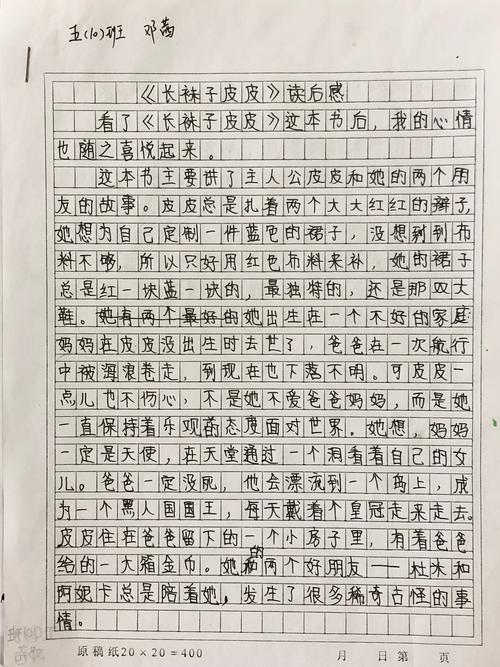 五(10)班 邓茜
《长袜子皮皮》读后感
看了《长袜子皮皮》这本书后，我的心情
也随之喜悦起来。
这本书主要讲了主人公皮皮和她的两个朋
友的故事。皮皮总是扎着两个大大红红的辫子，
她想为自己定制一件蓝色的裙子，没想到到布
料不够，所以只好用红色布料来补，她的裙子
总是红一块蓝一块的，最独特的，还是那双大
鞋。她有两个最好的她出生在一个不好的家庭
妈妈在皮皮没出生时去世了，爸爸在一次航行
中被海浪卷走，到现在也下落不明。可皮皮一
点儿也不伤心，不是她不爱爸爸妈妈，而是她
一直保持着乐观的态度面对世界。她想，妈妈
一定是天使，在天堂通过一个洞看着自己的女
儿。爸爸一定没死，他会漂流到一个岛上，成
为一个黑人国国王，每天戴着个皇冠走来走去。
皮皮住在爸爸留下的一个小房子里，有着爸爸
给的一大箱金币。她的两个好朋友——杜木和
阿妮卡总是陪着她，发生了很多稀奇古怪的事
情。
原稿纸20×20=400 月 日第 页